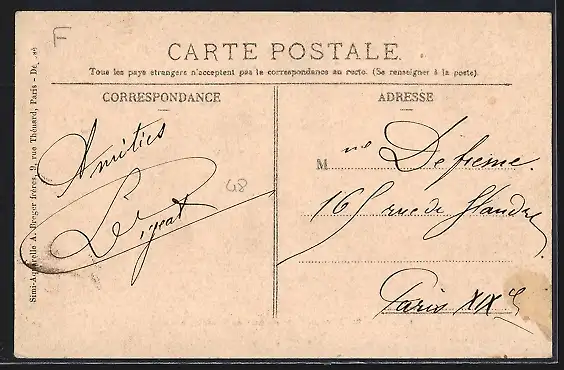 F
CARTE POSTALE
Tous les pays étrangers n'acceptent pas la correspondance au recto. (Se renseigner à la poste).
CORRESPONDANCE
Amitiés
48
ADRESSE
Mme Defieme.
165 rue de Flandre
Paris XIXe
Simi-Aquarelle A. Breger frères, 9, rue Thénard, Paris - Dé